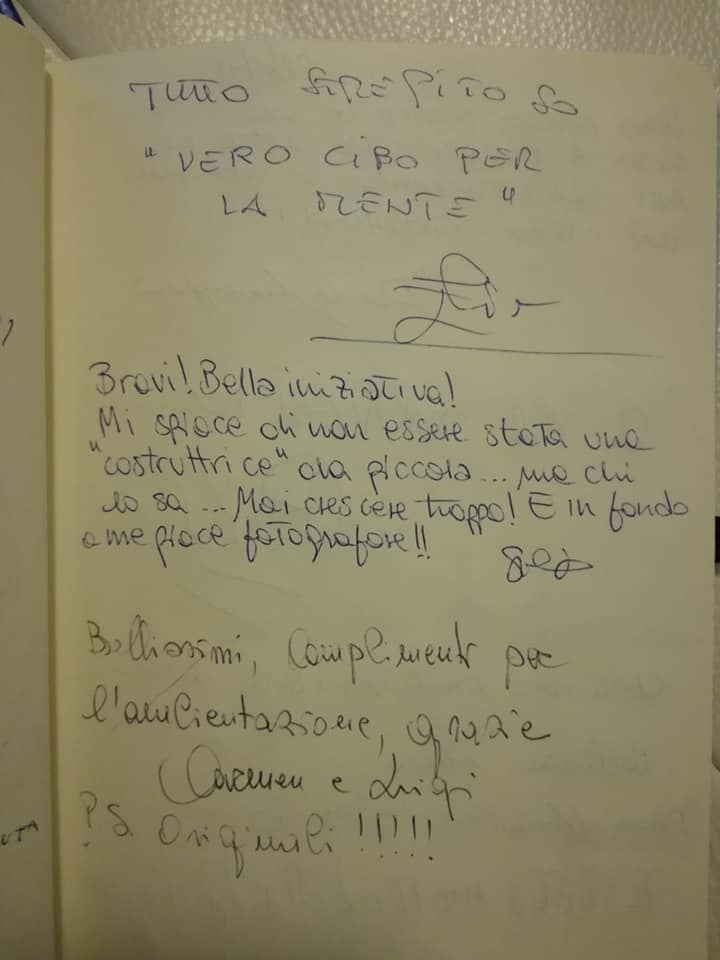 TUTTO STREPITOSO
"VERO CIBO PER
LA MENTE"
Bravi! Bella iniziativa!
Mi spiace di non essere stata una
"costruttrice" da piccola... ma chi
lo sa... Mai crescere troppo! E in fondo
a me piace fotografare!!
Bellissimi, Complimenti per
l'ambientazione, grazie
Carmen e Luigi
P.S. Originali !!!!!